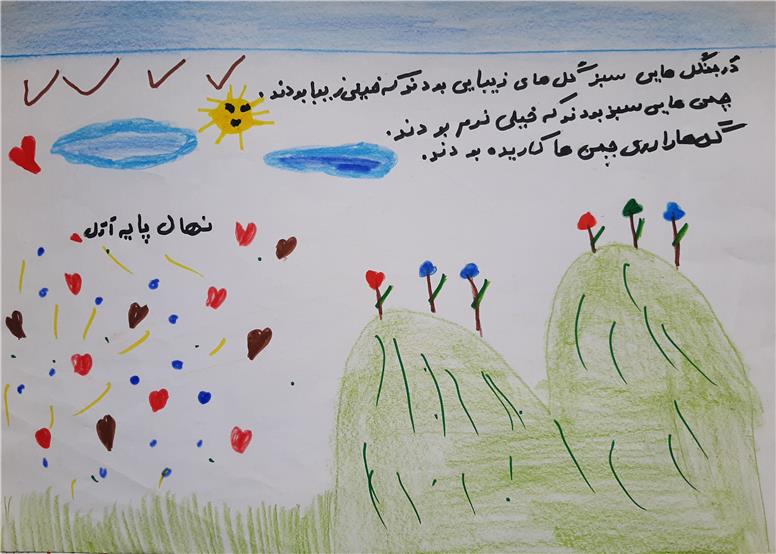 در جنگل هایی سبز گل های زیبایی بودند که خیلی زیبا بودند.
چمن هایی سبز بودند که خیلی نرم بودند.
گل ها را روی چمن ها کاریده بودند.
نهال پایه اول